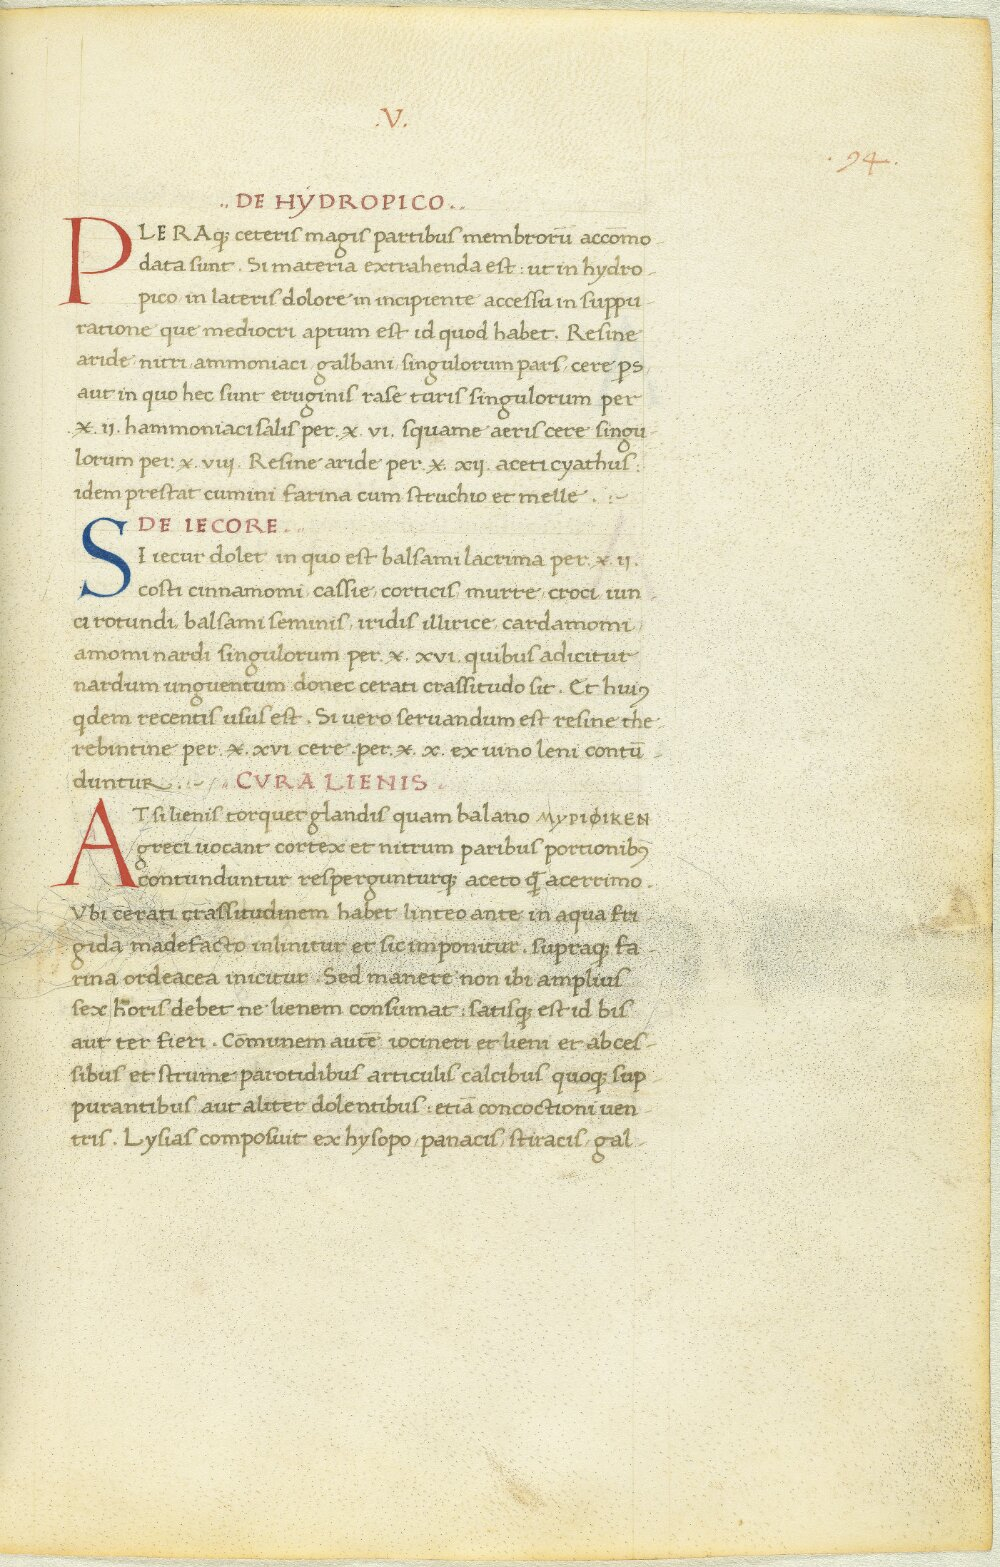 .V.
.94.
.. DE HYDROPICO ..
PLERAq; ceteris magis partibus membrorū accōmo
data sunt. Si materia extrahenda est : ut in hydro
pico in lateris dolore in incipiente accessu in suppu
ratione que mediocri aptum est id quod habet. Resine
aride nitri ammoniaci galbani singulorum pars cere ps
aut in quo hec sunt eruginis rase turis singulorum per
.X. II. hammoniaci salis per. X. VI. squame aeris cere singu
lorum per. X. VIII. Resine aride per. X. XII. aceti cyathus :
idem prestat cumini farina cum struchio et melle .
DE IECORE .
SI iecur dolet in quo est balsami lacrima per. X. II.
costi cinnamomi, cassie, corticis murre, croci, iun
ci rotundi, balsami seminis, iridis illirice, cardamomi,
amomi nardi singulorum per. X. XVI. quibus adicitur
nardum unguentum donec cerati crassitudo sit. Et huiꝰ
qdem recentis usus est. Si uero seruandum est resine the
rebintine per. X. XVI cere per. X. X. ex uino leni contū
duntur .. CVRA LIENIS .
AT si lienis torquet glandis quam balano MYPIΦIKEN
greci uocant cortex et nitrum paribus portionibꝰ
contunduntur respergunturq; aceto q̄ acerrimo.
Vbi cerati crassitudinem habet linteo ante in aqua fri
gida madefacto inlinitur et sic imponitur. supraq; fa
rina ordeacea inicitur. Sed manere non ibi amplius
sex horis debet ne lienem consumat : satisq; est id bis
aut ter fieri. Cōmunem autē iocineri et lieni et absces
sibus et strume parotidibus articulis calcibus quoq; sup
purantibus aut aliter dolentibus : etiā concoctioni uen
tris. Lysias composuit ex hysopo, panacis, stiracis, gal